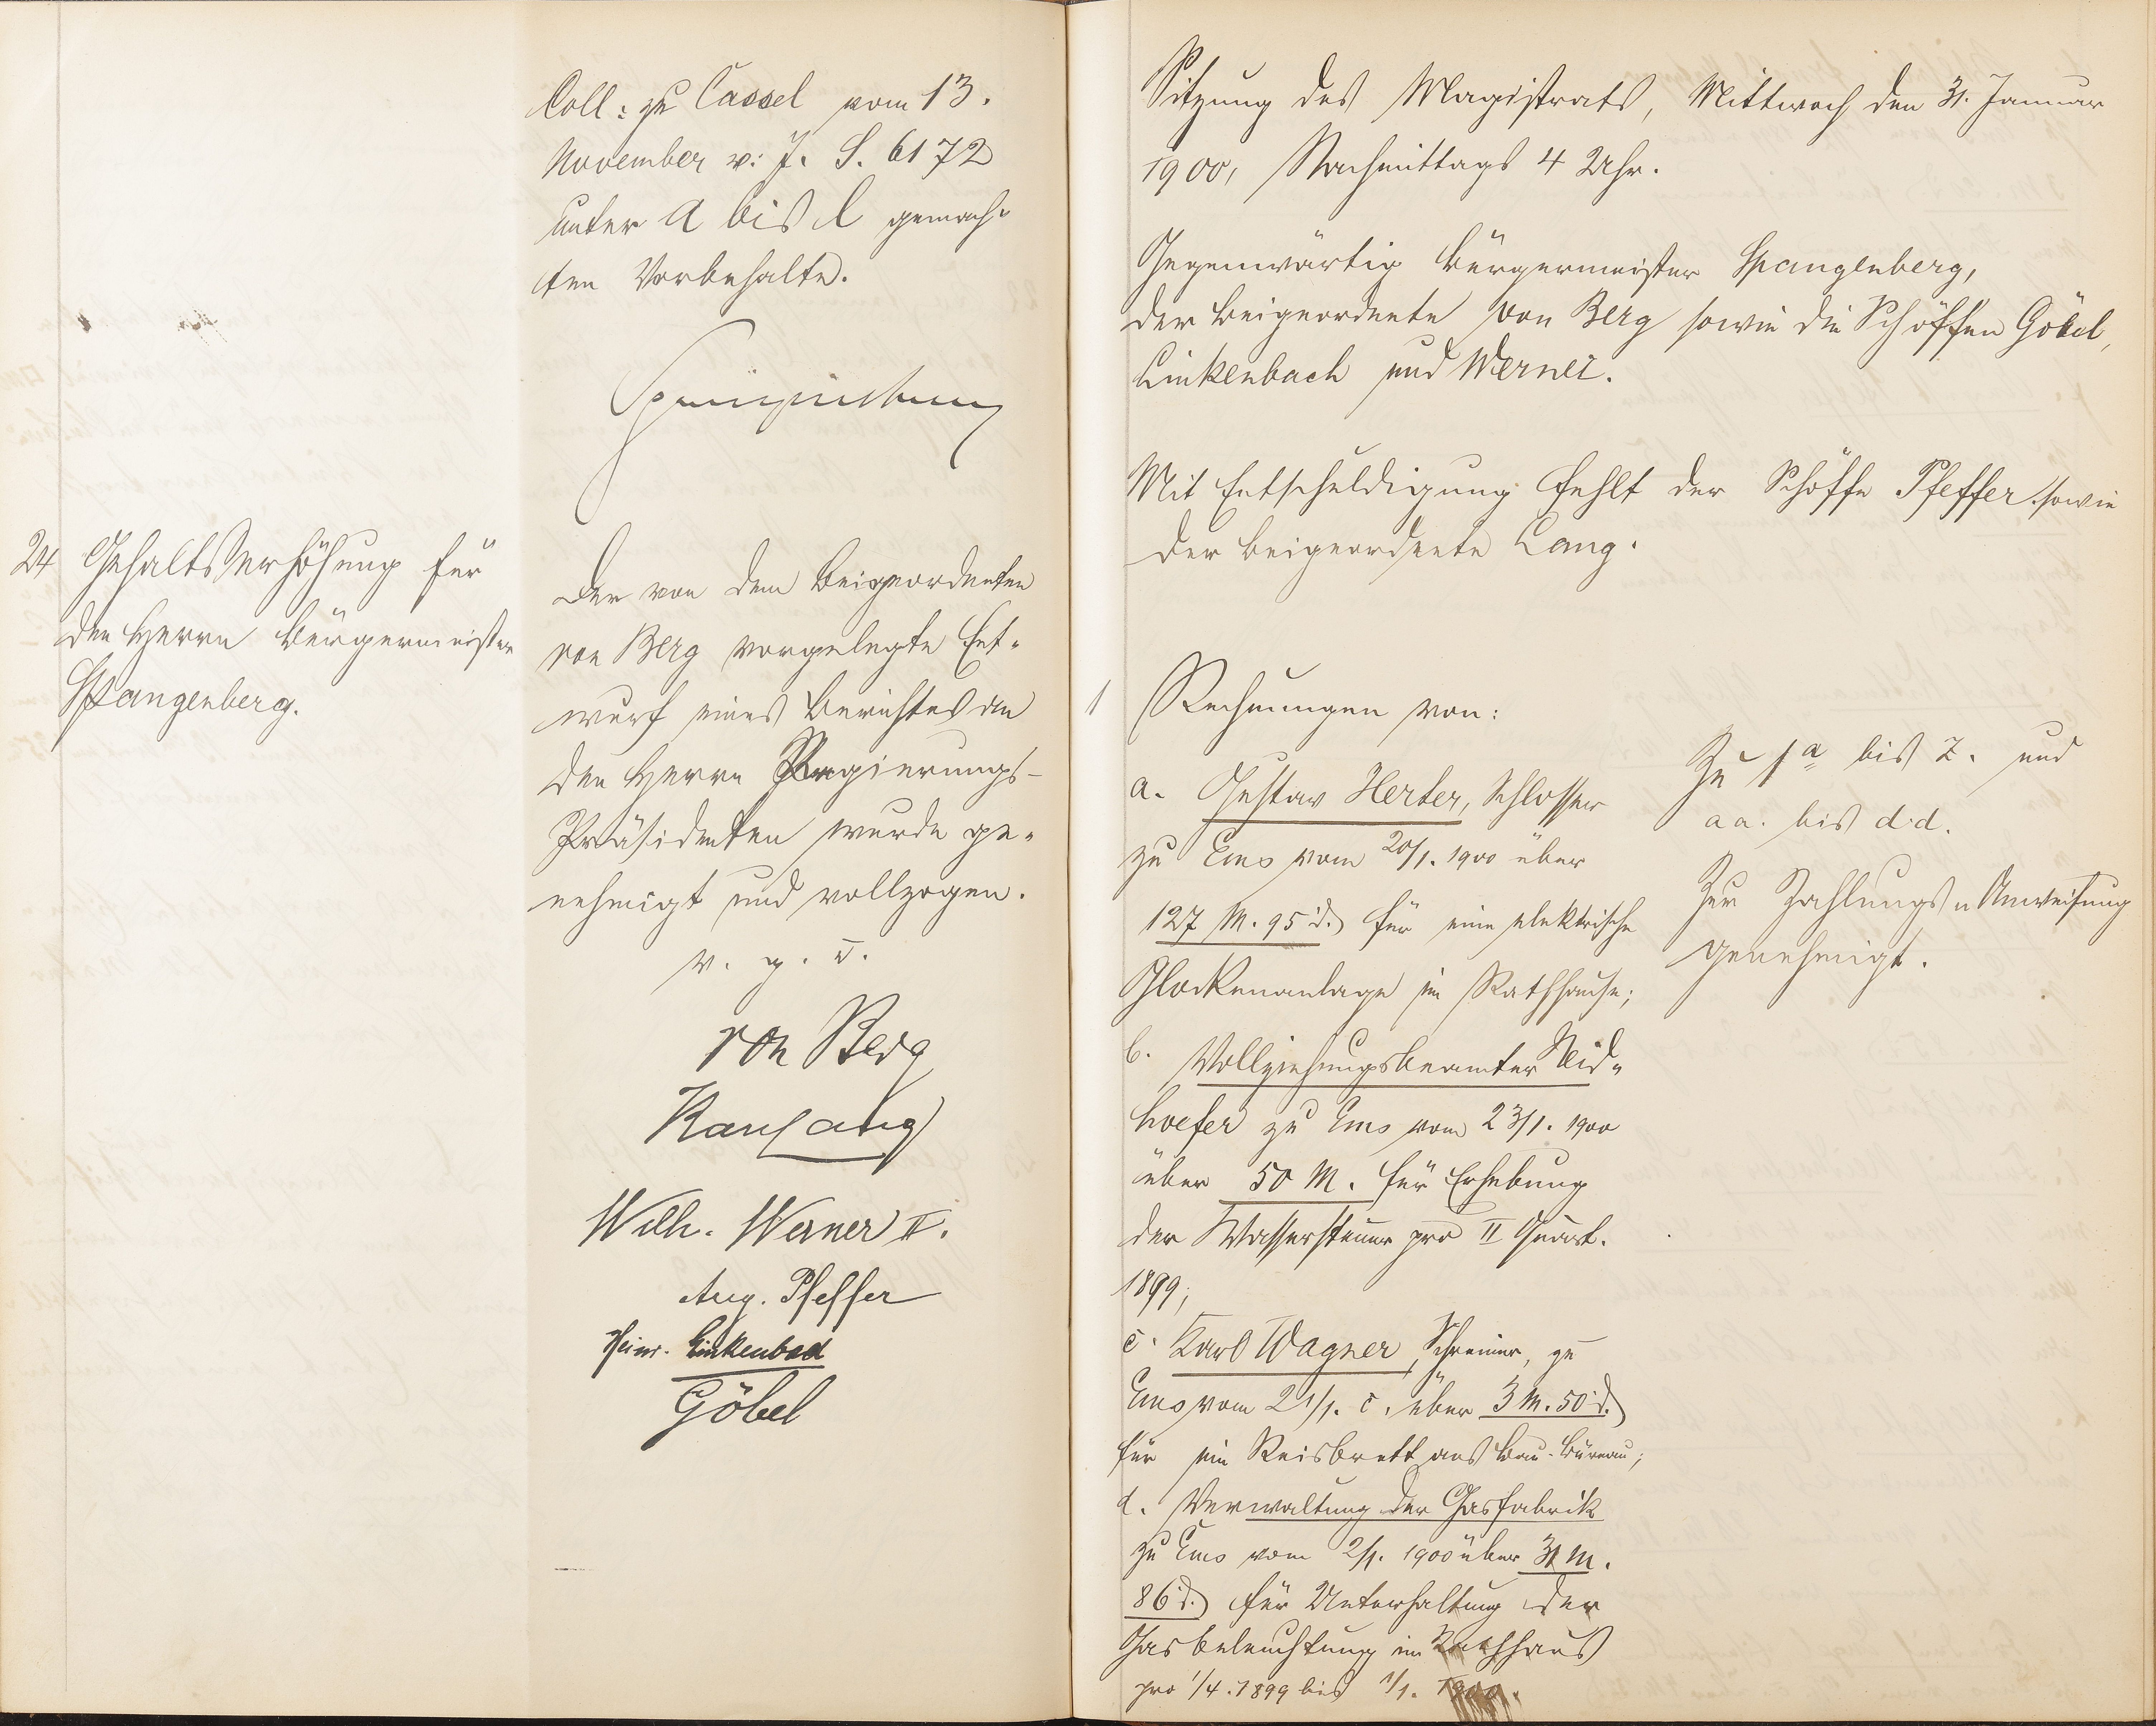 Coll: zu Cassel vom 13.
November v: J. S. 6172
unter a bis l gemach-
ten Vorbehalte.
Spangenberg
24 Gehaltserhöhung für
den Herrn Bürgermeister
Spangenberg.
Der von dem Beigeordneten
von Berg vorgelegte Ent-
wurf eines Berichtes an
den Herrn Regierungs-
Präsidenten wurde ge-
nehmigt und vollzogen.
v. g. u.
von Berg
Karl Lang
Wilh. Werner II.
Aug. Pfeffer
Heinr. Linkenbach
Göbel
Sitzung des Magistrats, Mittwoch den 31. Januar
1900, Nachmittags 4 Uhr.
Gegenwärtig Bürgermeister Spangenberg,
der Beigeordnete von Berg sowie die Schöffen Göbel,
Linkenbach und Werner.
Mit Entschuldigung fehlt der Schöffe Pfeffer sowie
der Beigeordnete Lang.
1 Rechnungen von:
a. Gustav Herter, Schlosser
zu Ems vom 20/1. 1900 über
127 M. 95 d. für eine elektrische
Glockenanlage im Rathhause;
b. Vollziehungsbeamter Neid-
hoefer zu Ems vom 23/1. 1900
über 50 M. für Erhebung
der Wassersteuer pro II Quart.
1899;
c. Karl Wagner, Schreiner, zu
Ems vom 21/1. c. über 3 M. 50 d.
für ein Reisbrett aufs Bau-Büreau;
d. Verwaltung der Gasfabrik
zu Ems vom 2/1. 1900 über 31 M.
86 d. für Unterhaltung der
Gasbeleuchtung im Rathhaus
pro 1/4. 1899 bis 1/1. 1900.
Zu 1a bis z. und
aa. bis d.d.
Zur Zahlungs-Anweisung
genehmigt.